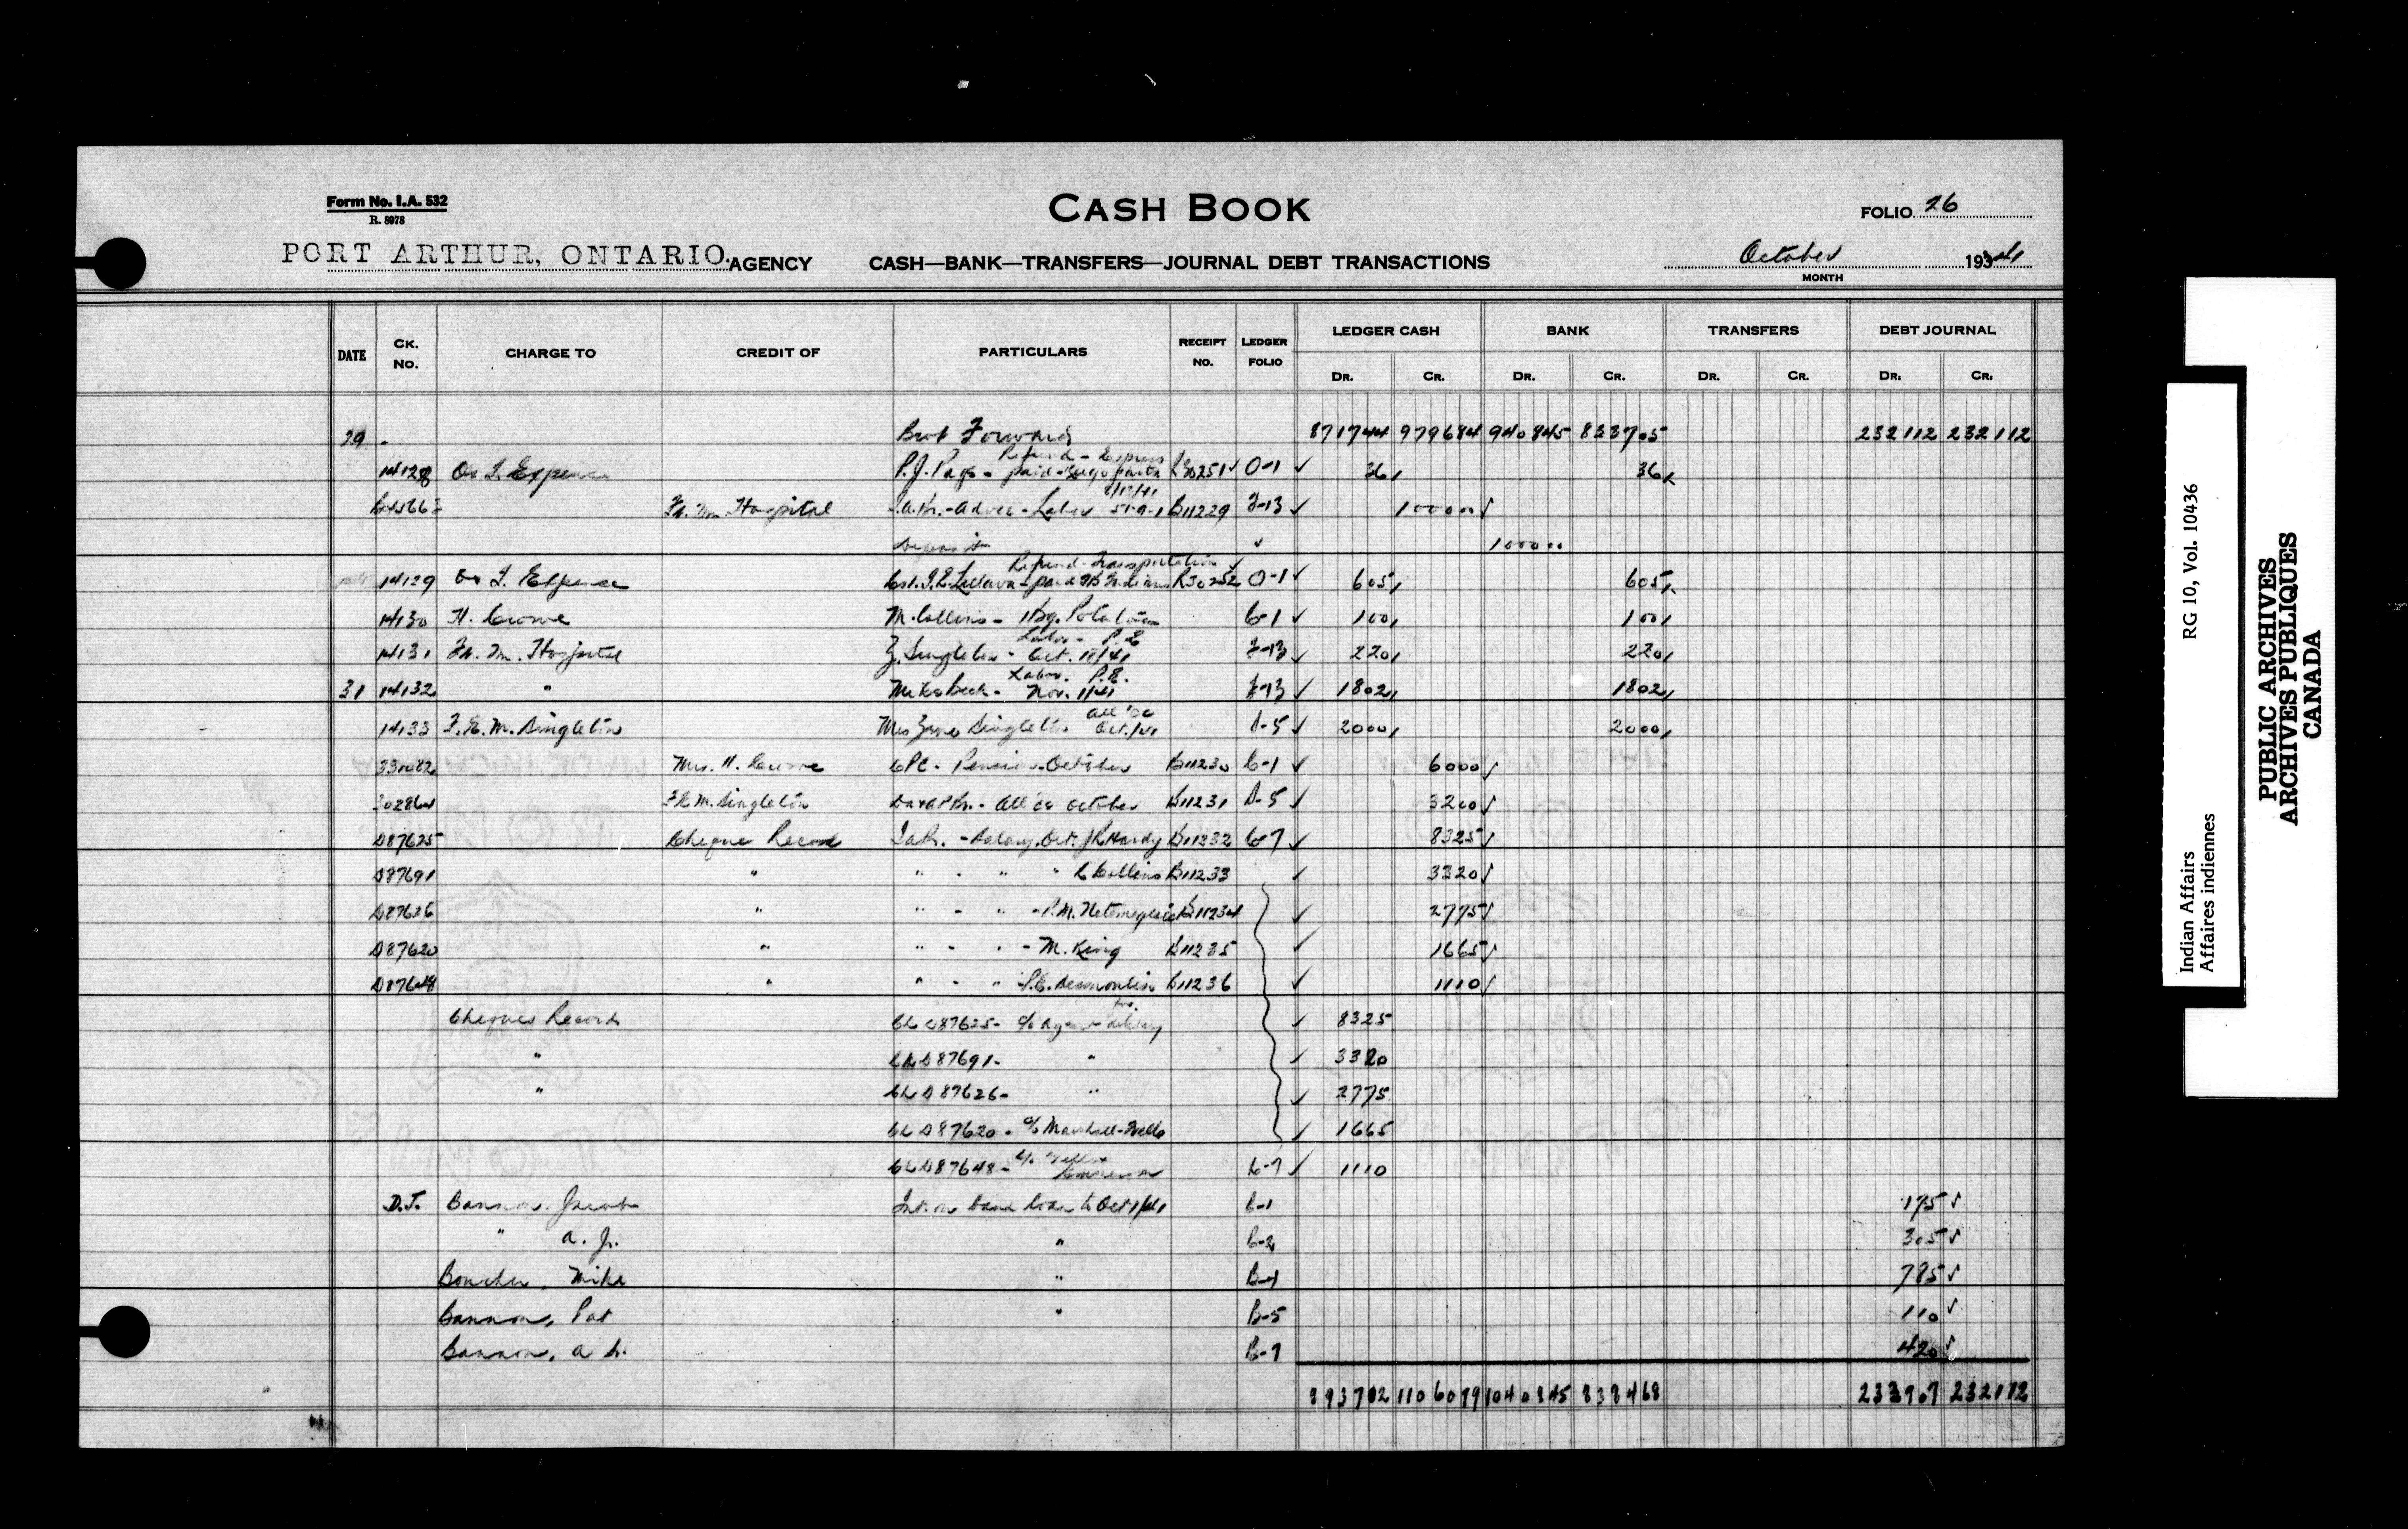 Form No. I.A. 532
R. 8978
CASH BOOK
FOLIO 26
PORT ARTHUR, ONTARIO. AGENCY
CASH—BANK—TRANSFERS—JOURNAL DEBT TRANSACTIONS
October 1941
MONTH
DATE CK. No. CHARGE TO CREDIT OF PARTICULARS RECEIPT No. LEDGER FOLIO LEDGER CASH BANK TRANSFERS DEBT JOURNAL
DR. CR. DR. CR. DR. CR. DR. CR.
29 Brot Forward 871744 979684 940845 833705 232112 232112
Refund - Express
14128 Expense P.J. Page - paid R30251 ✓ O-1 ✓ 36 36
Hospital Labor B11229 F-13 ✓ 100000 ✓
Deposit ✓ 100000
Refund-Transportation ✓
14129 Expense Indians R30252 O-1 ✓ 605 605
14130 H. Crowe M. Collins - 1 Bg. Potatoes C-1 ✓ 100 100
Labor - P.E.
14131 Ft. Wm. Hospital Z. Singleton - Oct. F-13 ✓ 220 220
Labor. P.E.
31 14132 " Mike Beck - Nov. 1/41 F-13 ✓ 1802 1802
14133 F.E.M. Singleton Mrs Singleton Oct./41 S-5 ✓ 2000 2000
Mrs. H. Crowe CPC - Pension - October B11230 C-1 ✓ 6000 ✓
F.E.M. Singleton October B11231 S-5 ✓ 3200 ✓
D87625 Cheque Record - Salary. Oct. Hardy B11232 C-7 ✓ 8325 ✓
D87691 " " - " " C Collins B11233 ✓ 3320 ✓
D87626 " " - " - P.M. B11234 ✓ 2775 ✓
D87620 " " - " - M. King B11235 ✓ 1665 ✓
D87648 " " - " - P.C. Desmoulin B11236 ✓ 1110 ✓
Cheques Record Ck D87625 - c/o Agent ✓ 8325
" Ck D87691 - " ✓ 3320
" Ck D87626 - " ✓ 2775
Ck D87620 - c/o Marshall-Wells ✓ 1665
Ck D87648 - c/o C-7 ✓ 1110
D.J. Bannon, Jacob Int. on band loan to Oct 1/41 B-1 175 ✓
" A. J. " B-2 305 ✓
Boucher, Mike " B-4 785 ✓
Bannon, Pat " B-5 110 ✓
Bannon, B-7 420 ✓
893702 1106079 1040845 838468 233907 232112
Indian Affairs RG 10, Vol. 10436
Affaires indiennes
PUBLIC ARCHIVES
ARCHIVES PUBLIQUES
CANADA